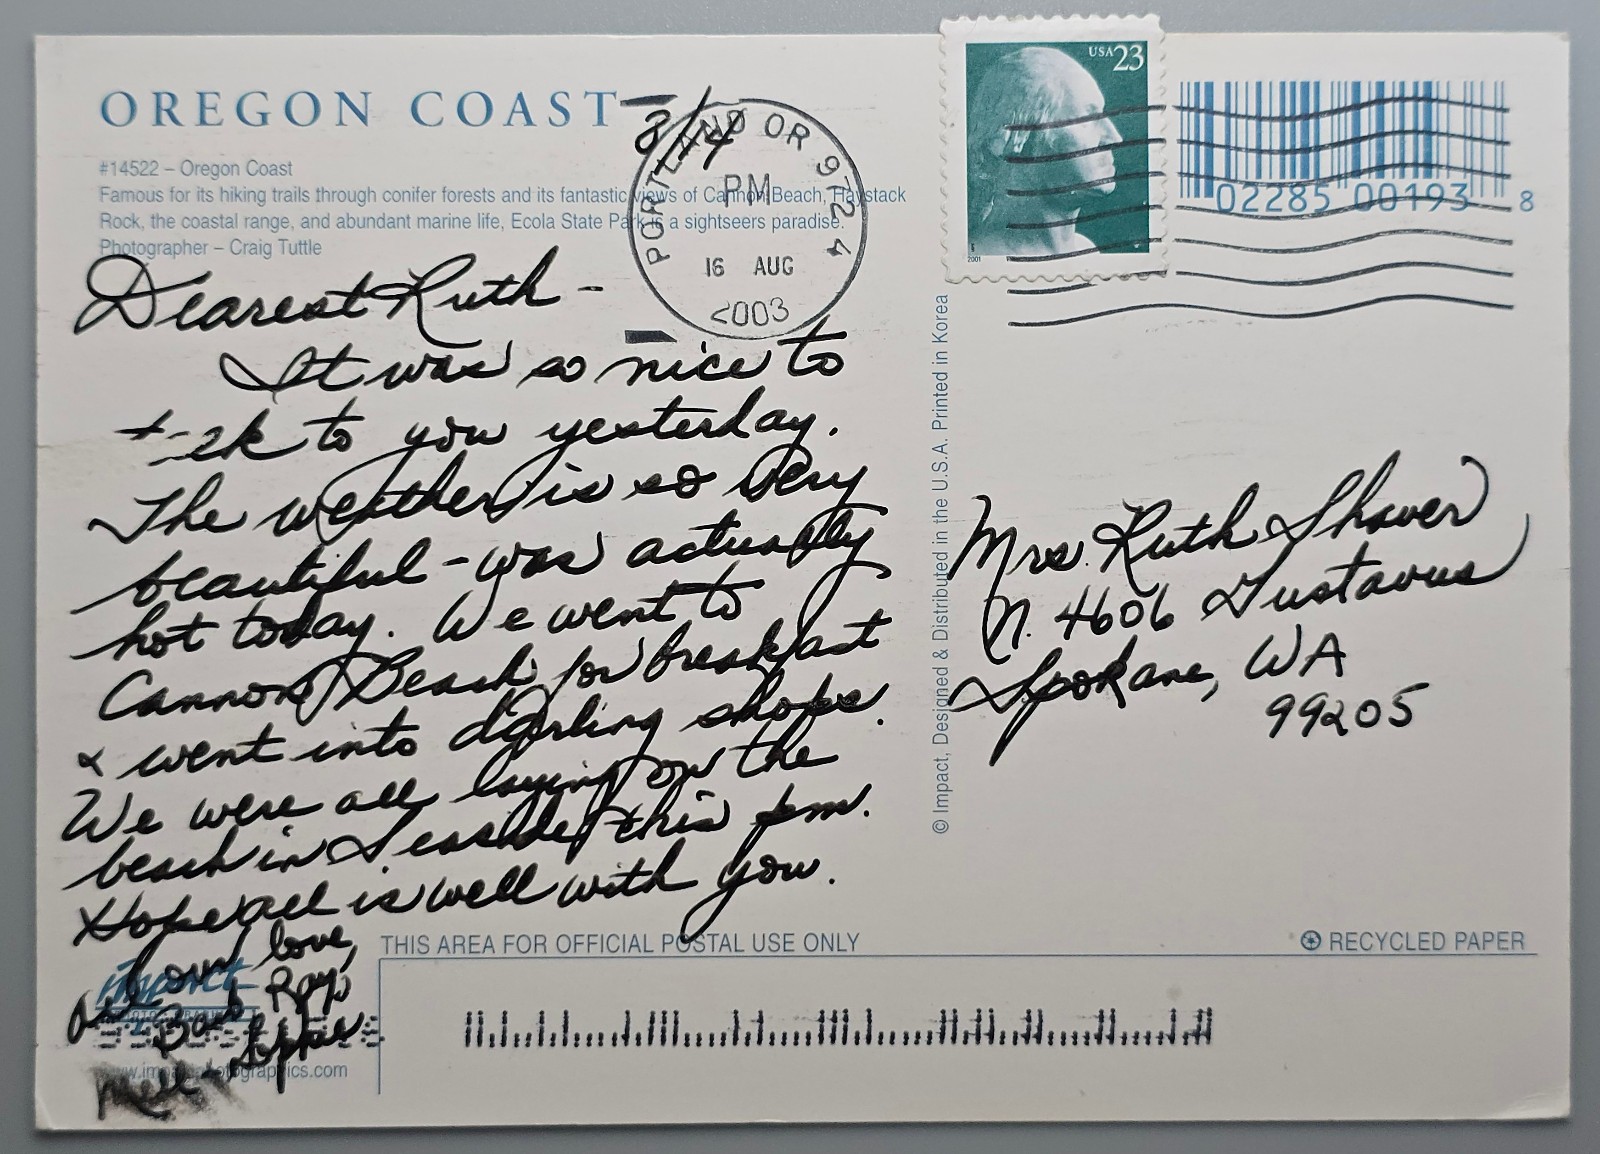 OREGON COAST
#14522 – Oregon Coast
Famous for its hiking trails through conifer forests and its fantastic views of Cannon Beach, Haystack
Rock, the coastal range, and abundant marine life, Ecola State Park is a sightseers paradise.
Photographer – Craig Tuttle
8/14
PORTLAND OR 972 4
PM
16 AUG
2003
USA 23
2001
02285 00193 8
Dearest Ruth –
It was so nice to
to you yesterday.
The weather is so very
beautiful – was actually
hot today. We went to
Cannon Beach for breakfast
& went into darling shops.
We were all laying on the
beach in Seaside this pm.
Hope all is well with you.
All our love,
Barb Ray
Sophie
© Impact, Designed & Distributed in the U.S.A. Printed in Korea
Mrs. Ruth Shaver
N. 4606 Gustavus
Spokane, WA
99205
THIS AREA FOR OFFICIAL POSTAL USE ONLY
RECYCLED PAPER
impact
www.impactphotographics.com